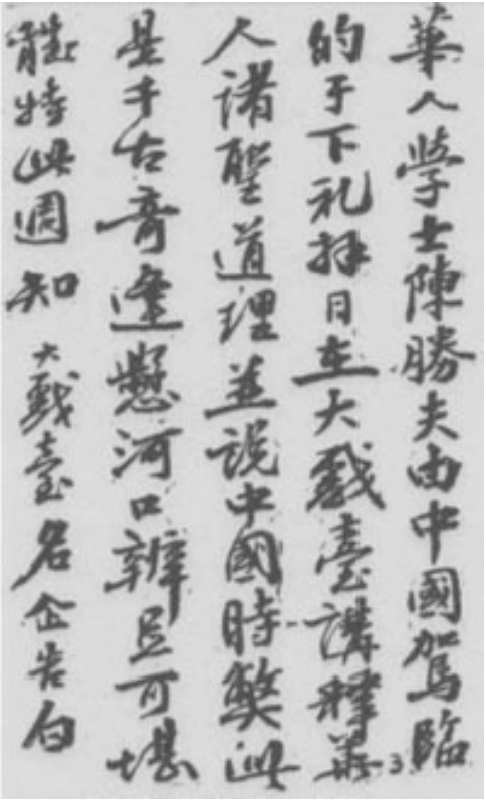 華人學士陳勝夫由中國駕臨
的于下礼拜日在大戲臺講釋華
人诸聖道理並説中國時獘此
是千古奇逢懸河口辨足可堪
聽特此週知 大戲臺名企告白